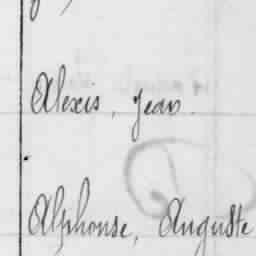 Alexis, Jean.
Alphonse, Auguste